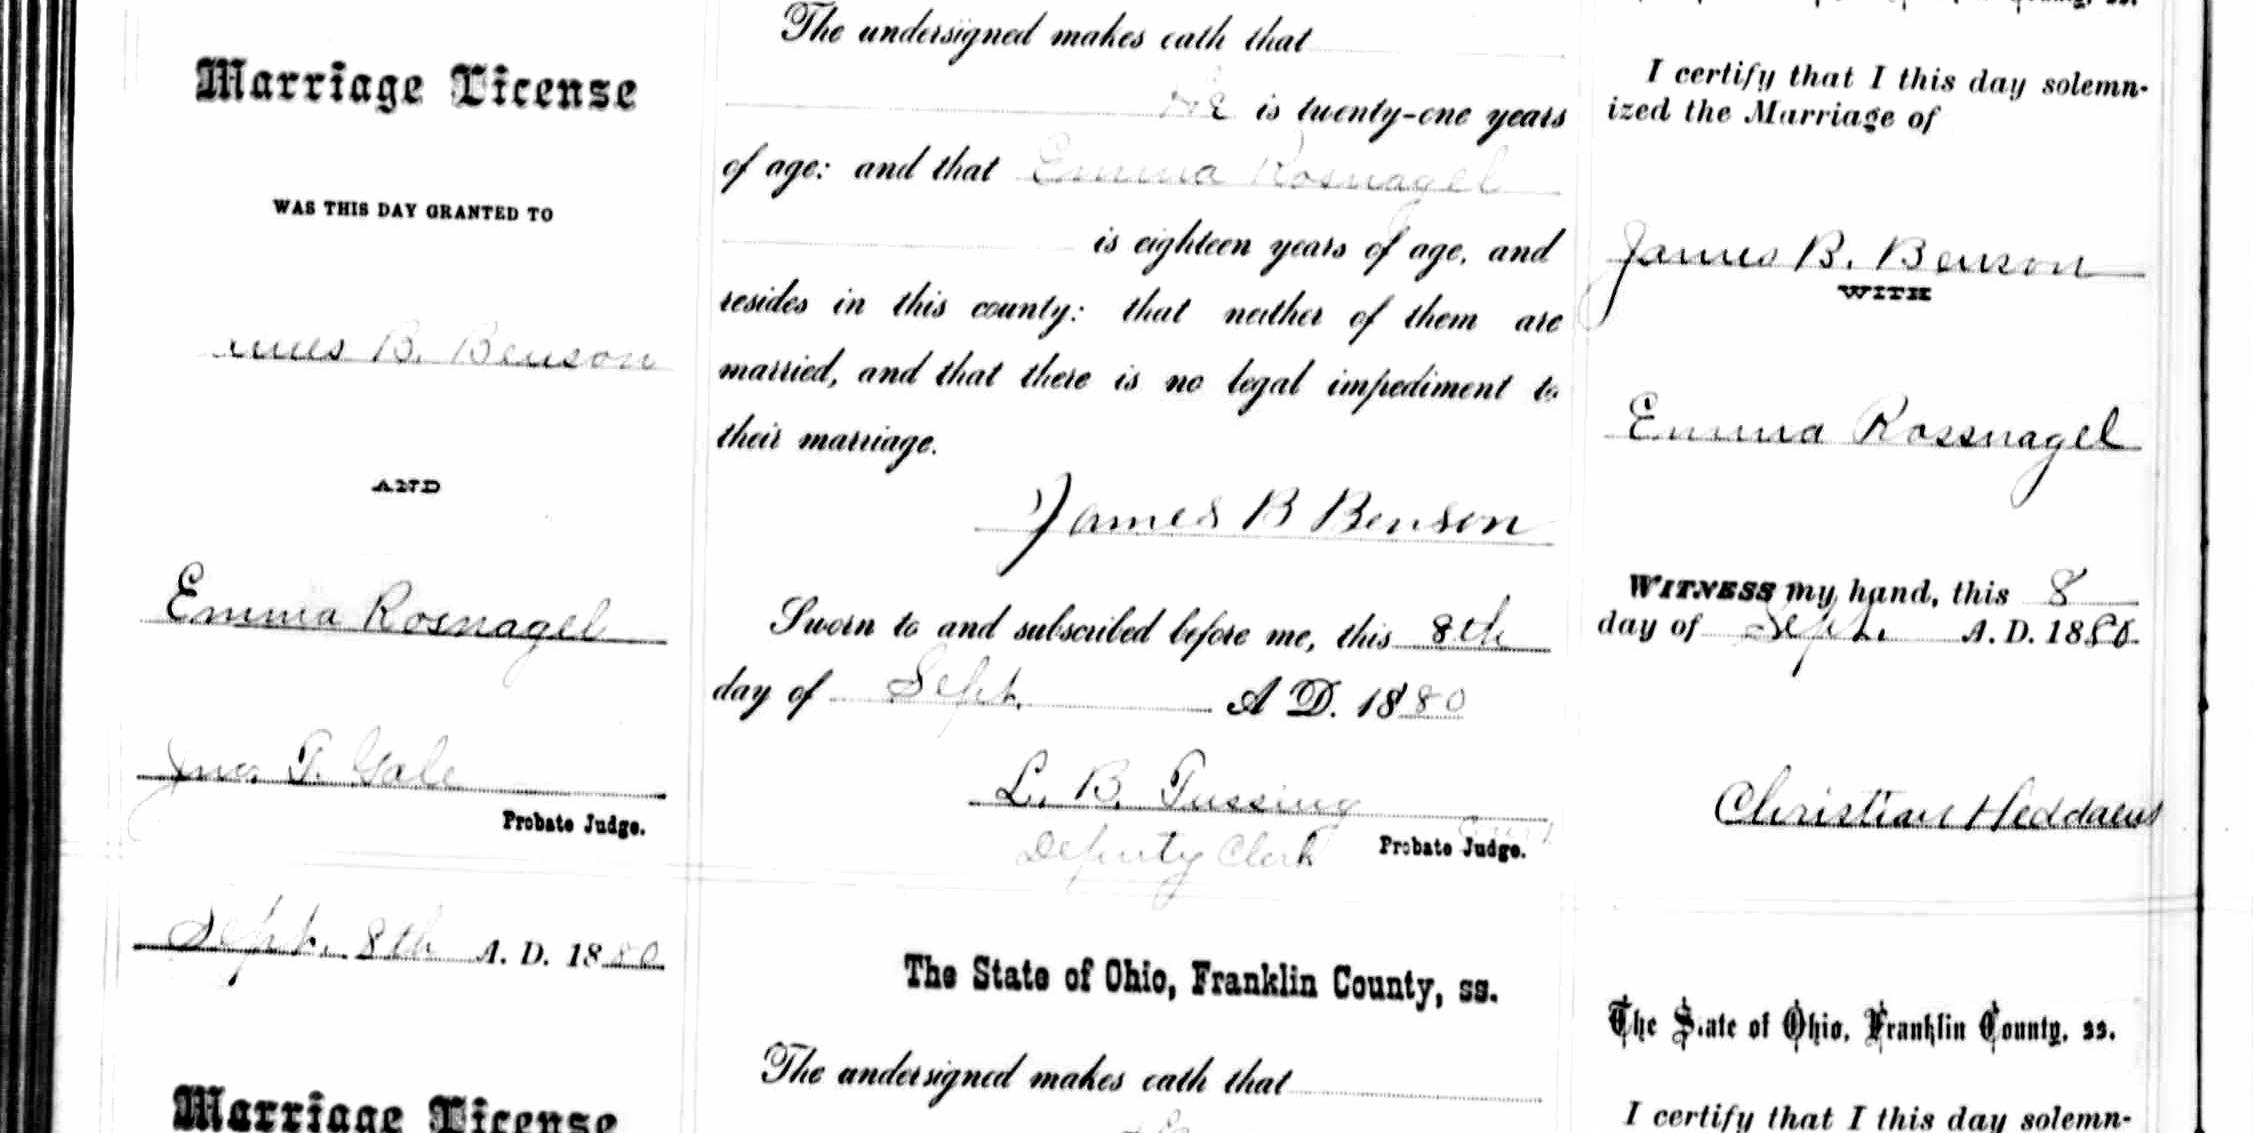 Marriage License
WAS THIS DAY GRANTED TO
B. Benson
AND
Emma Rosnagel
Jno. T. Gale
Probate Judge.
Sept. 8th A. D. 1880
Marriage License
The undersigned makes oath that
he is twenty-one years
of age: and that Emma Rosnagel
is eighteen years of age, and
resides in this county: that neither of them are
married, and that there is no legal impediment to
their marriage.
James B Benson
Sworn to and subscribed before me, this 8th
day of Sept. A D. 1880
L. B. Tussing
Deputy Clerk Probate Judge.
The State of Ohio, Franklin County, ss.
The undersigned makes oath that
I certify that I this day solemn-
ized the Marriage of
James B. Benson
WITH
Emma Rossnagel
WITNESS my hand, this 8
day of Sept. A. D. 1880.
Christian Heddaeus
The State of Ohio, Franklin County, ss.
I certify that I this day solemn-